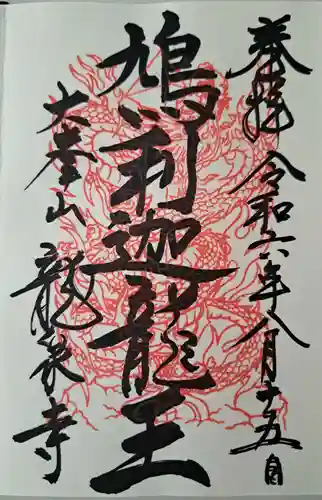 奉拝 令和六年八月十五日
鳩利迦龍王
大本山 龍泉寺